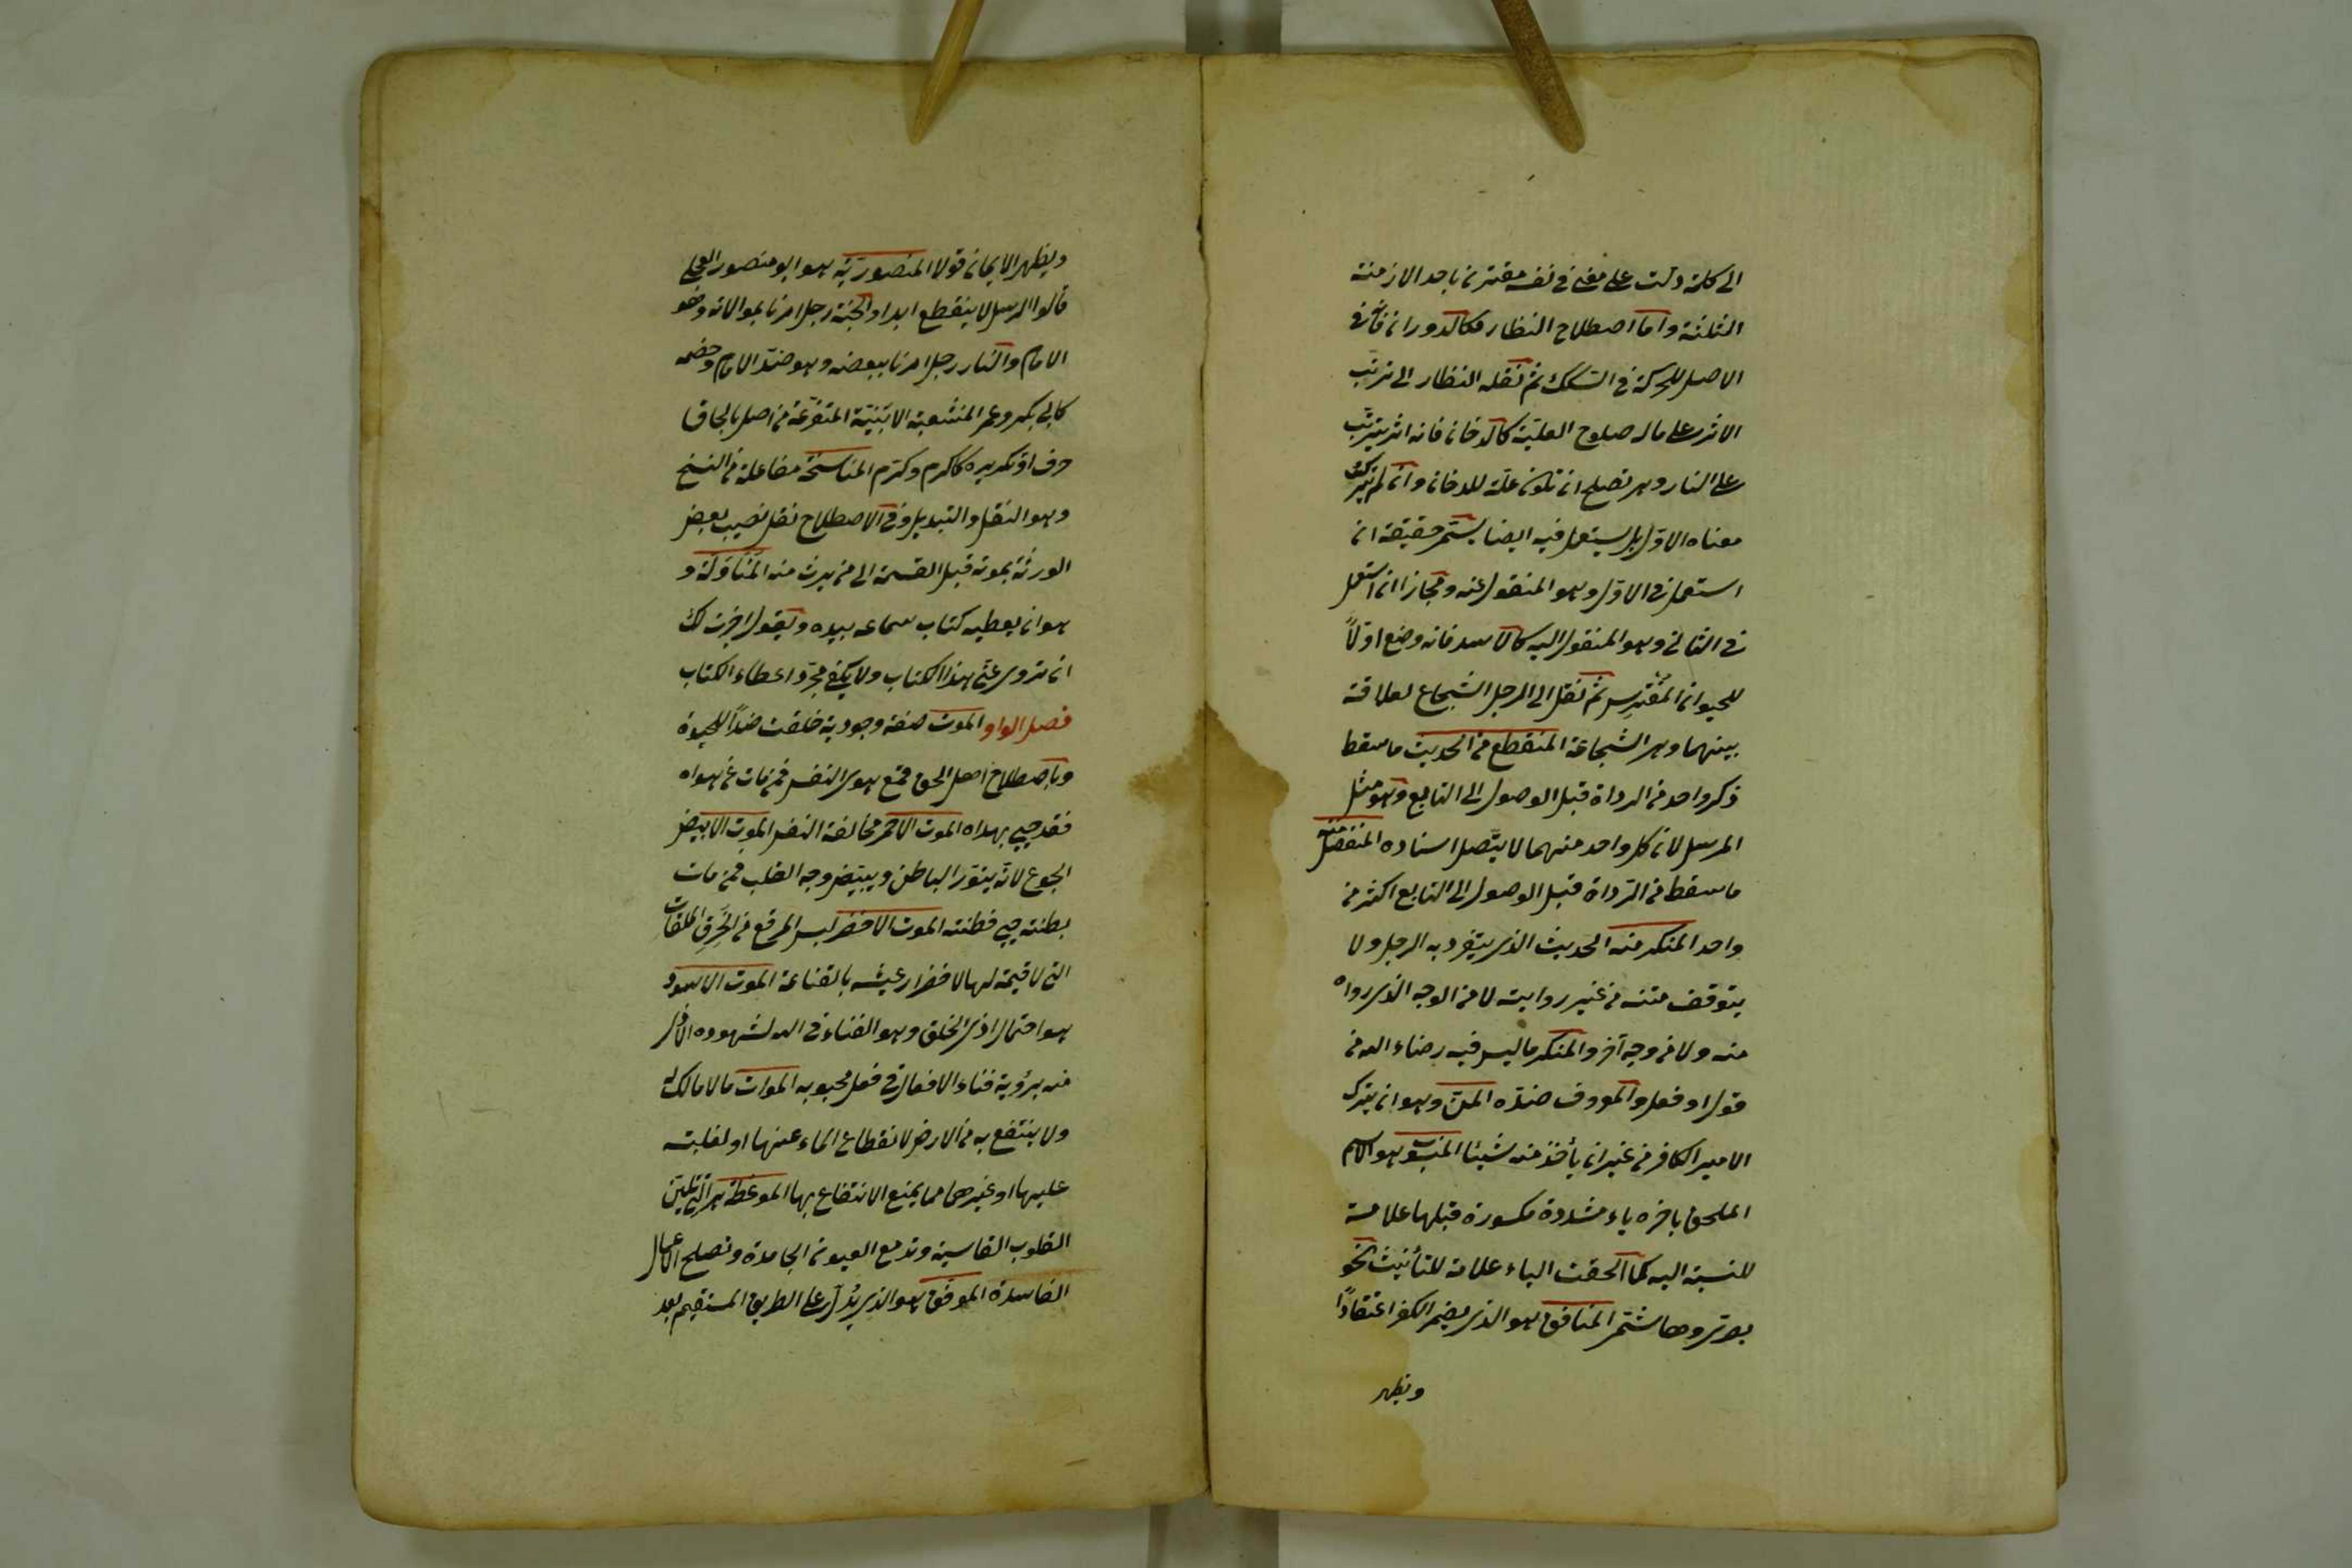 الى كلمة دلت على معنى في نفسه مقترن باحد الازمنة
الثلثة واما اصطلاح النظار فكالدوران فانه في
الاصل للحركة في السكك ثم نقله النظار الى ترتب
الاثر على ما له صلوح العلية كالدخان فانه اثر يترتب
على النار وهي تصلح ان تكون علة للدخان وان لم يترك
معناه الاول بل يستعمل فيه ايضا يسمى حقيقة ان
استعمل في الاول وهو المنقول عنه ومجازا ان استعمل
في الثاني وهو المنقول اليه كالاسد فانه وضع اولاً
للحيوان المفترس ثم نقل الى الرجل الشجاع لعلاقة
بينهما وهي الشجاعة المنقطع من الحديث ما سقط
ذكر واحد من الرواة قبل الوصول الى التابع وهو مثل
المرسل لان كل واحد منهما لا يتصل اسناده المنفصل منه
ما سقط من الرواة قبل الوصول الى التابع اكثر من
واحد المنكر منه الحديث الذي يتفرد به الرجل ولا
يتوقف متنه من غير روايته لا من الوجه الذي رواه
منه ولا من وجه آخر والمنكر ما ليس فيه رضاء الله من
قول او فعل والمعروف ضده المن وهو ان يترك
الامير الكافر من غير ان يأخذ منه شيئا المنسوب هو الاسم
الملحق باخره ياء مشددة مكسورة قبلها علامة
للنسبة اليه كما الحقت التاء علامة للتأنيث نحو
بصري وهاشمي المنافق هو الذي يضمر الكفر اعتقادًا
ويظهر
ويظهر الايمان قولا المنصورية هو ابو منصور العجلي
قالوا الرسل لا ينقطع ابدا والجنة رجل امرنا بموالاته وهو
الامام والنار رجل امرنا ببغضه وهو ضد الامام وخصمه
كابي بكر وعمر المنشعبة الابنية المتفرعة من اصل بالحاق
حرف او تكريره كاكرم وكرّم المناسخة مفاعلة من النسخ
وهو النقل والتبديل وفي الاصطلاح نقل نصيب بعض
الورثة بموته قبل القسمة الى من يرث منه المناولة و
هو ان يعطيه كتاب سماعه بيده ويقول اجزت لك
ان تروي عني هذا الكتاب ولا يكفي مجرد اعطاء الكتاب
فصل الواو الموت صفة وجودية خلقت ضداً للحيوة
وباصطلاح اهل الحق قمع هوى النفس فمن مات عن هواه
فقد حيي بهداه الموت الاحمر مخالفة النفس الموت الابيض
الجوع لانه ينور الباطن ويبيض وجه القلب فمن مات
بطنته حيي فطنته الموت الاخضر لبس المرقع من الخرق الملقات
التي لا قيمة لها لاخضرار عيشه بالقناعة الموت الاسود
هو احتمال اذى الخلق وهو الفناء في الله لشهوده الاذى
منه برؤية فناء الافعال في فعل محبوبه الموات ما لا مالك له
ولا ينتفع به من الارض لانقطاع الماء عنها او لغلبته
عليها او غيرهما مما يمنع الانتفاع بها الموعظة هي التي تلين
القلوب القاسية وتدمع العيون الجامدة وتصلح الاعمال
الفاسدة الموفق هو الذي يدل على الطريق المستقيم بعد